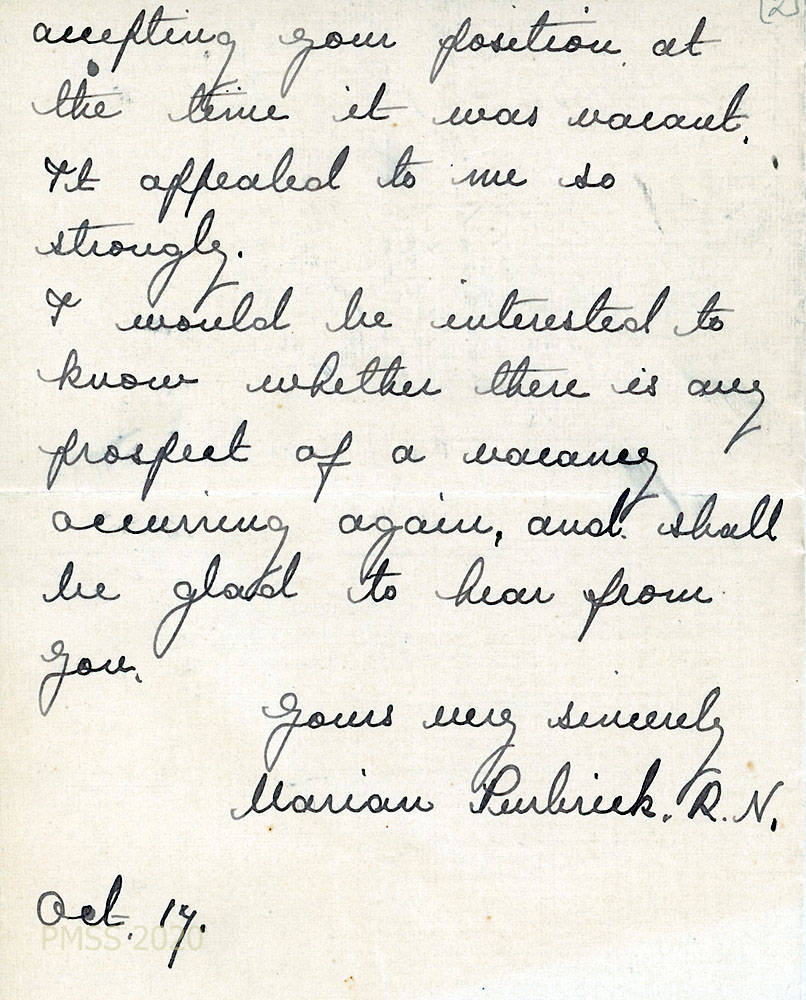 [2]
accepting your position at
the time it was vacant.
It appealed to me so
strongly.
I would be interested to
know whether there is any
prospect of a vacancy
occurring again, and shall
be glad to hear from
you.
Yours very sincerely
Marian Purbrick. R.N.
Oct. 17.
PMSS 2020